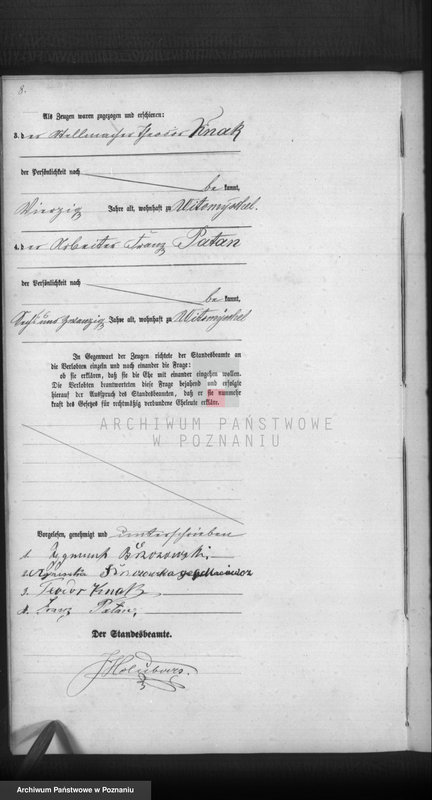 8.
Als Zeugen waren zugezogen und erschienen:
3. der Stellmacher Theodor Knak
der Persönlichkeit nach
be kannt,
Vierzig Jahre alt, wohnhaft zu Witomyschel.
4. der Arbeiter Franz Patan
der Persönlichkeit nach
be kannt,
Sechs und zwanzig Jahre alt, wohnhaft zu Witomyschel
In Gegenwart der Zeugen richtete der Standesbeamte an
die Verlobten einzeln und nach einander die Frage:
ob sie erklären, daß sie die Ehe mit einander eingehen wollen.
Die Verlobten beantworteten diese Frage bejahend und erfolgte
hierauf der Ausspruch des Standesbeamten, daß er sie nunmehr
kraft des Gesetzes für rechtmäßig verbundene Eheleute erkläre.
ARCHIWUM PAŃSTWOWE
W POZNANIU
Vorgelesen, genehmigt und unterschrieben
1. Zygmunt Brzozowski.
2.
3. Teodor Knak
4. Franz Patan,
Der Standesbeamte.
Archiwum Państwowe w Poznaniu